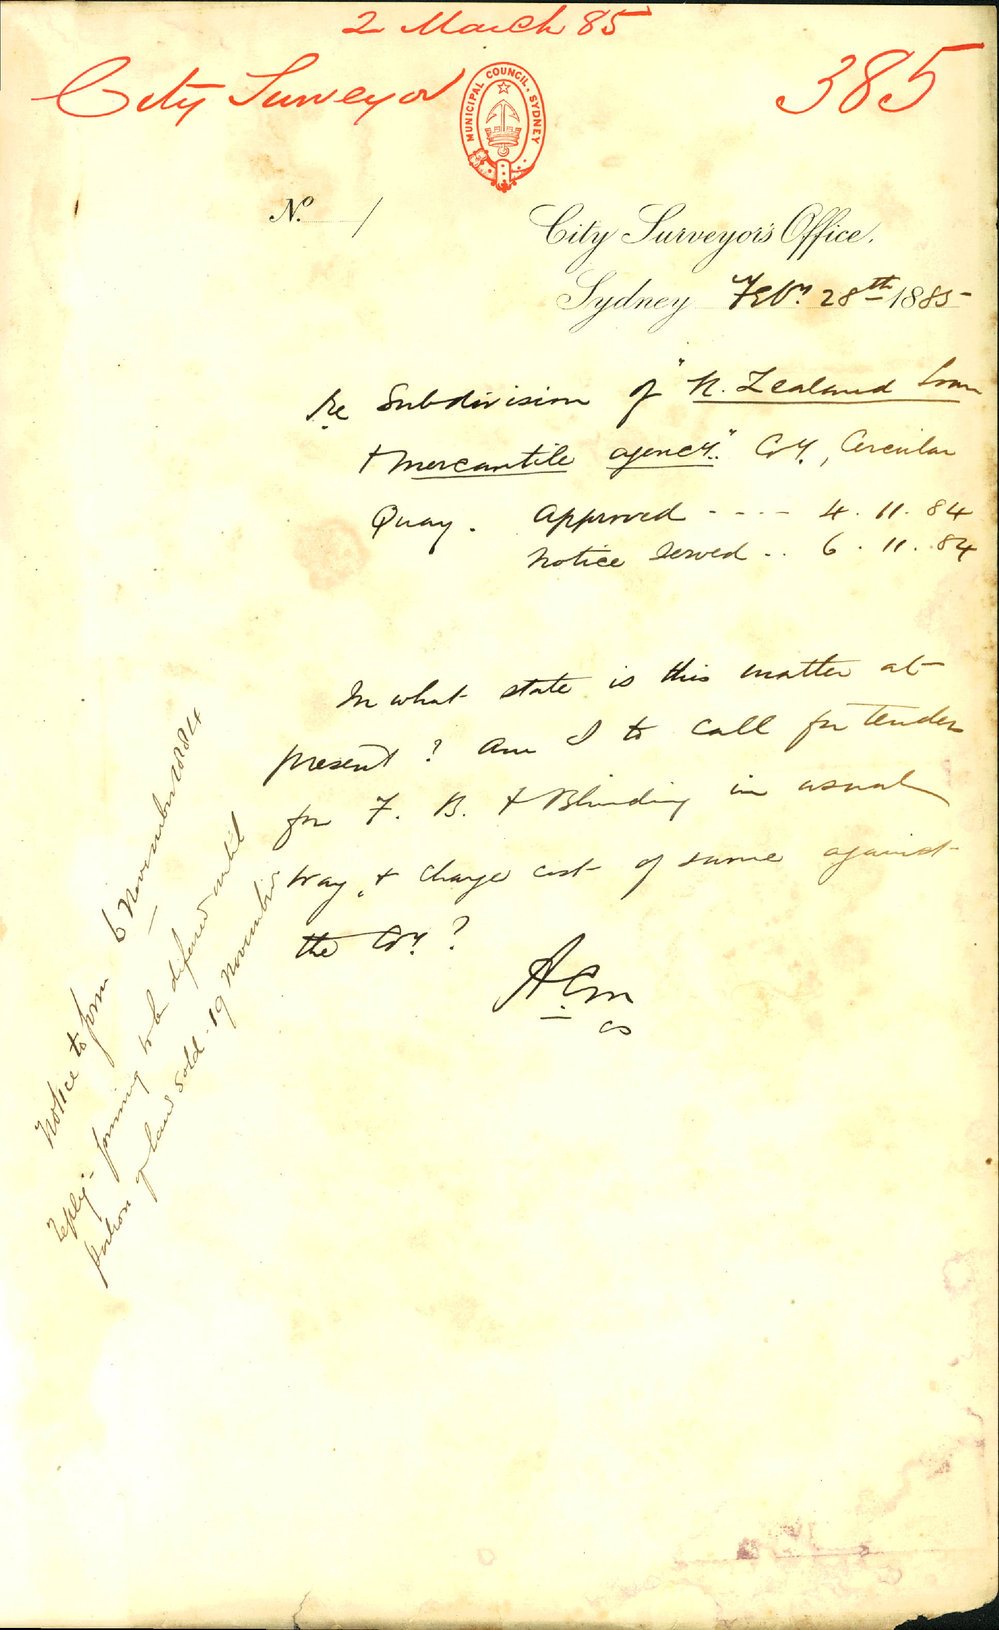 2 March 85
City Surveyor
385
MUNICIPAL COUNCIL, SYDNEY
No. /
City Surveyor's Office.
Sydney Feby. 28th 1885
Re Subdivision of "N. Zealand Loan
& Mercantile agency." Coy., Circular
Quay. Approved - - - - 4. 11. 84
Notice served .. 6. 11. 84
In what state is this matter at
present? Am I to call for tenders
for F. B. & Blinding in usual
way, & charge cost of same against
the Coy?
ACM
CS
Notice to form 6 November 1884
Reply - forming to be deferred until
portion of land sold. 19 November